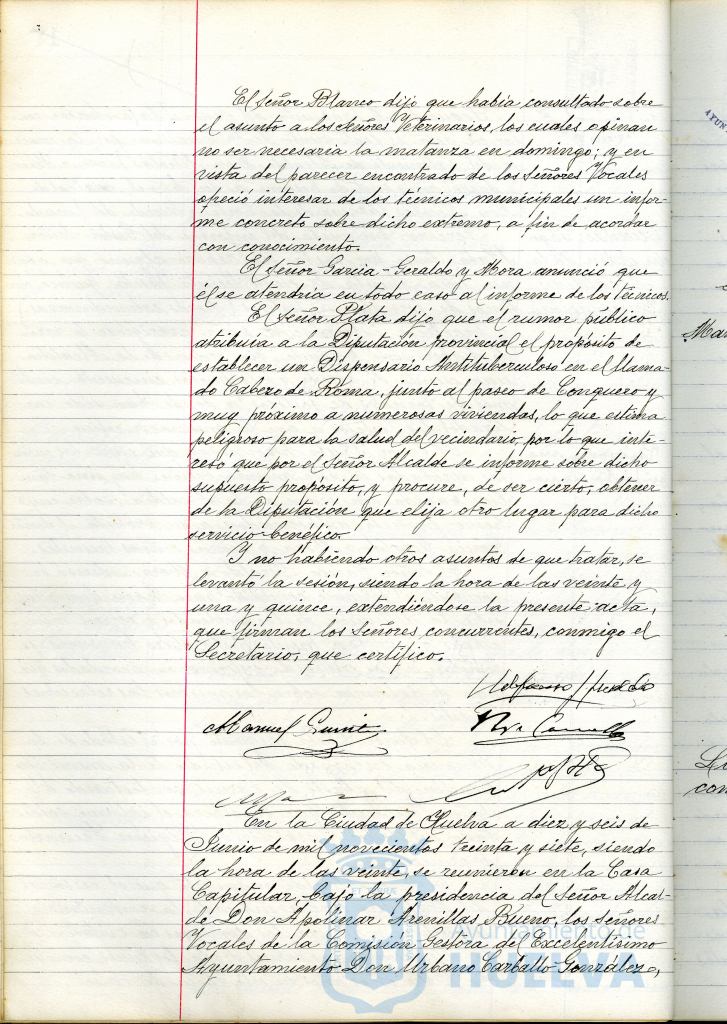 El Señor Blanco dijo que había consultado sobre
el asunto a los Señores Veterinarios, los cuales opinan
no ser necesaria la matanza en domingo; y en
vista del parecer encontrado de los Señores Vocales
ofreció interesar de los técnicos municipales un infor-
me concreto sobre dicho extremo, a fin de acordar
con conocimiento.
El Señor Garcia-Geraldo y Mora anunció que
él se atendría en todo caso al informe de los técnicos.
El Señor Plata dijo que el rumor público
atribuia a la Diputación provincial el propósito de
establecer un Dispensario Antituberculoso en el llama-
do Cabezo de Roma, junto al paseo de Conquero y
muy próximo a numerosas viviendas, lo que estima
peligroso para la salud del vecindario, por lo que inte-
resó que por el Señor Alcalde se informe sobre dicho
supuesto propósito, y procure, de ser cierto, obtener
de la Diputación que elija otro lugar para dicho
servicio benéfico.
Y no habiendo otros asuntos de que tratar, se
levantó la sesión, siendo la hora de las veinte y
una y quince, extendiéndose la presente acta,
que firman los Señores concurrentes, conmigo el
Secretario, que certifico.
Manuel
En la Ciudad de Huelva a diez y seis de
Junio de mil novecientos treinta y siete, siendo
la hora de las veinte, se reunieron en la Casa
Capitular, bajo la presidencia del Señor Alcal-
de Don Apolinar Arenillas Bueno, los Señores
Vocales de la Comisión Gestora del Excelentísimo
Ayuntamiento Don Urbano Carballo González,
Ayuntamiento de
HUELVA